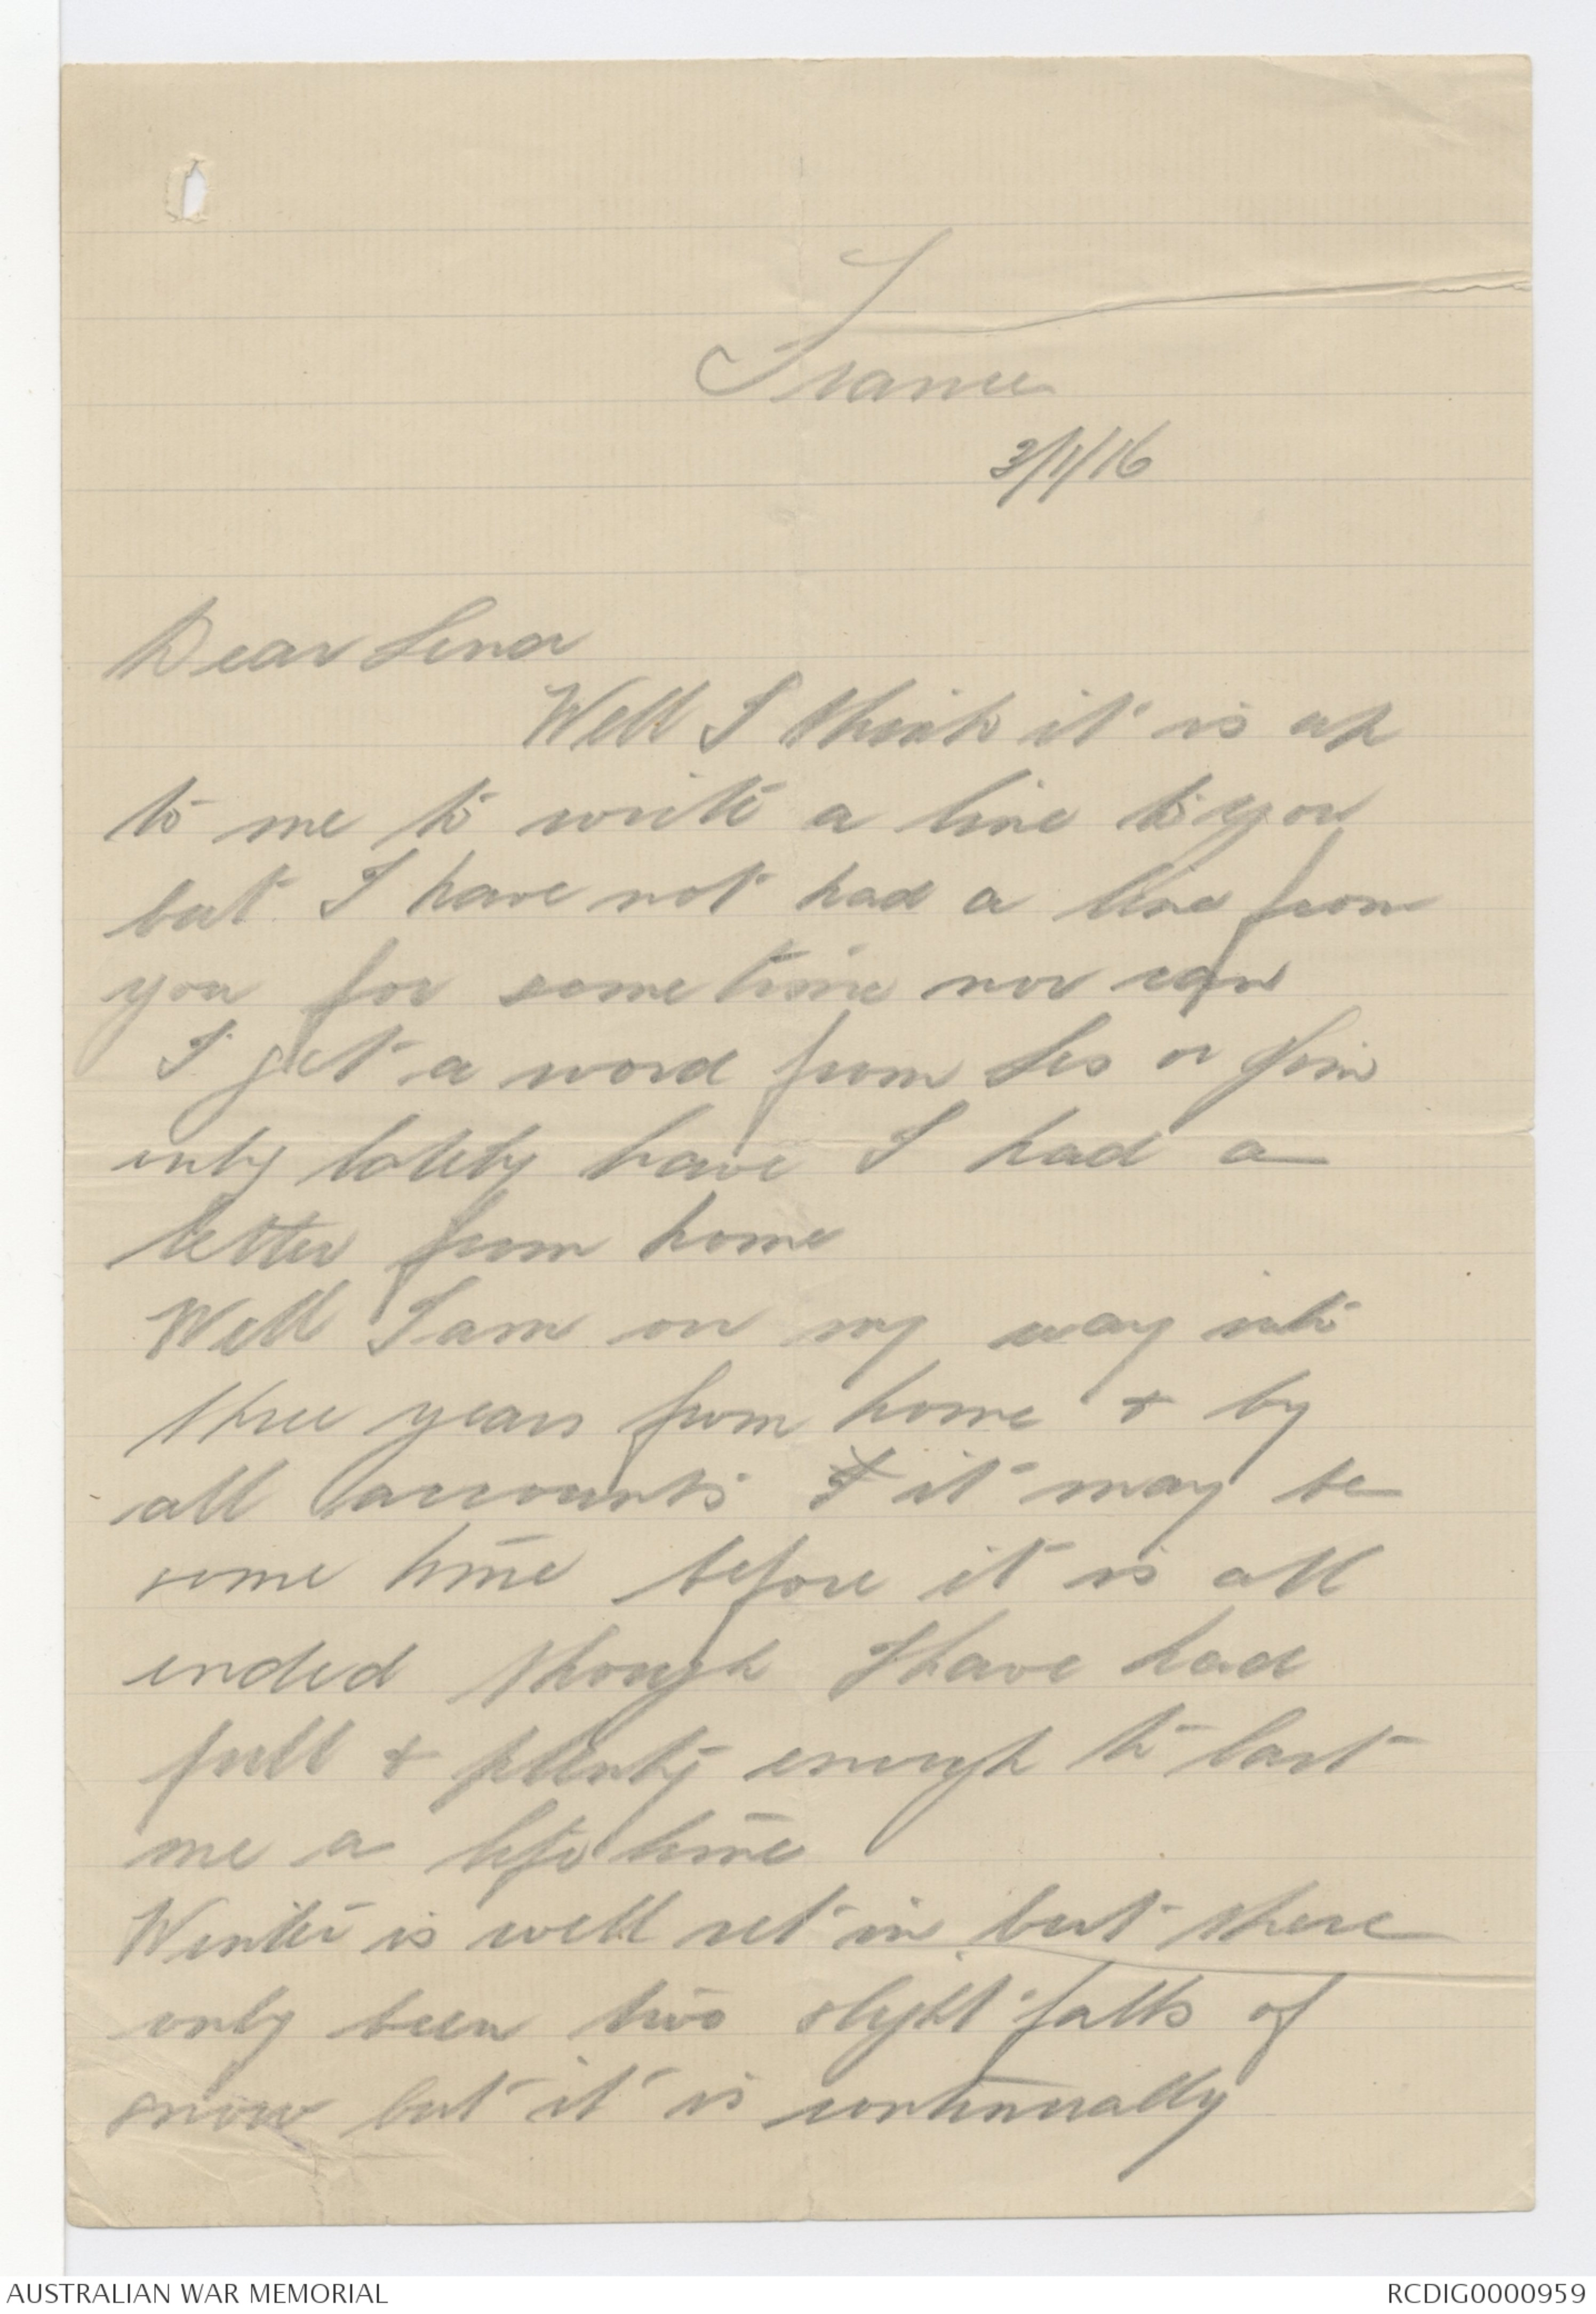 France
3/11/16
Dear Lena
Well I think it is up
to me to write a line to you
but I have not had a line from
you for some time nor can
I get a word from Les or Jim
only lately have I had a
letter from home
Well I am on my way into
three years from home & by
all accounts it may be
some time before it is all
ended though I have had
full & plenty enough to last
me a life time
Winter is well set in but there
only been two slight falls of
snow but it is continually
AUSTRALIAN WAR MEMORIAL
RCDIG0000959